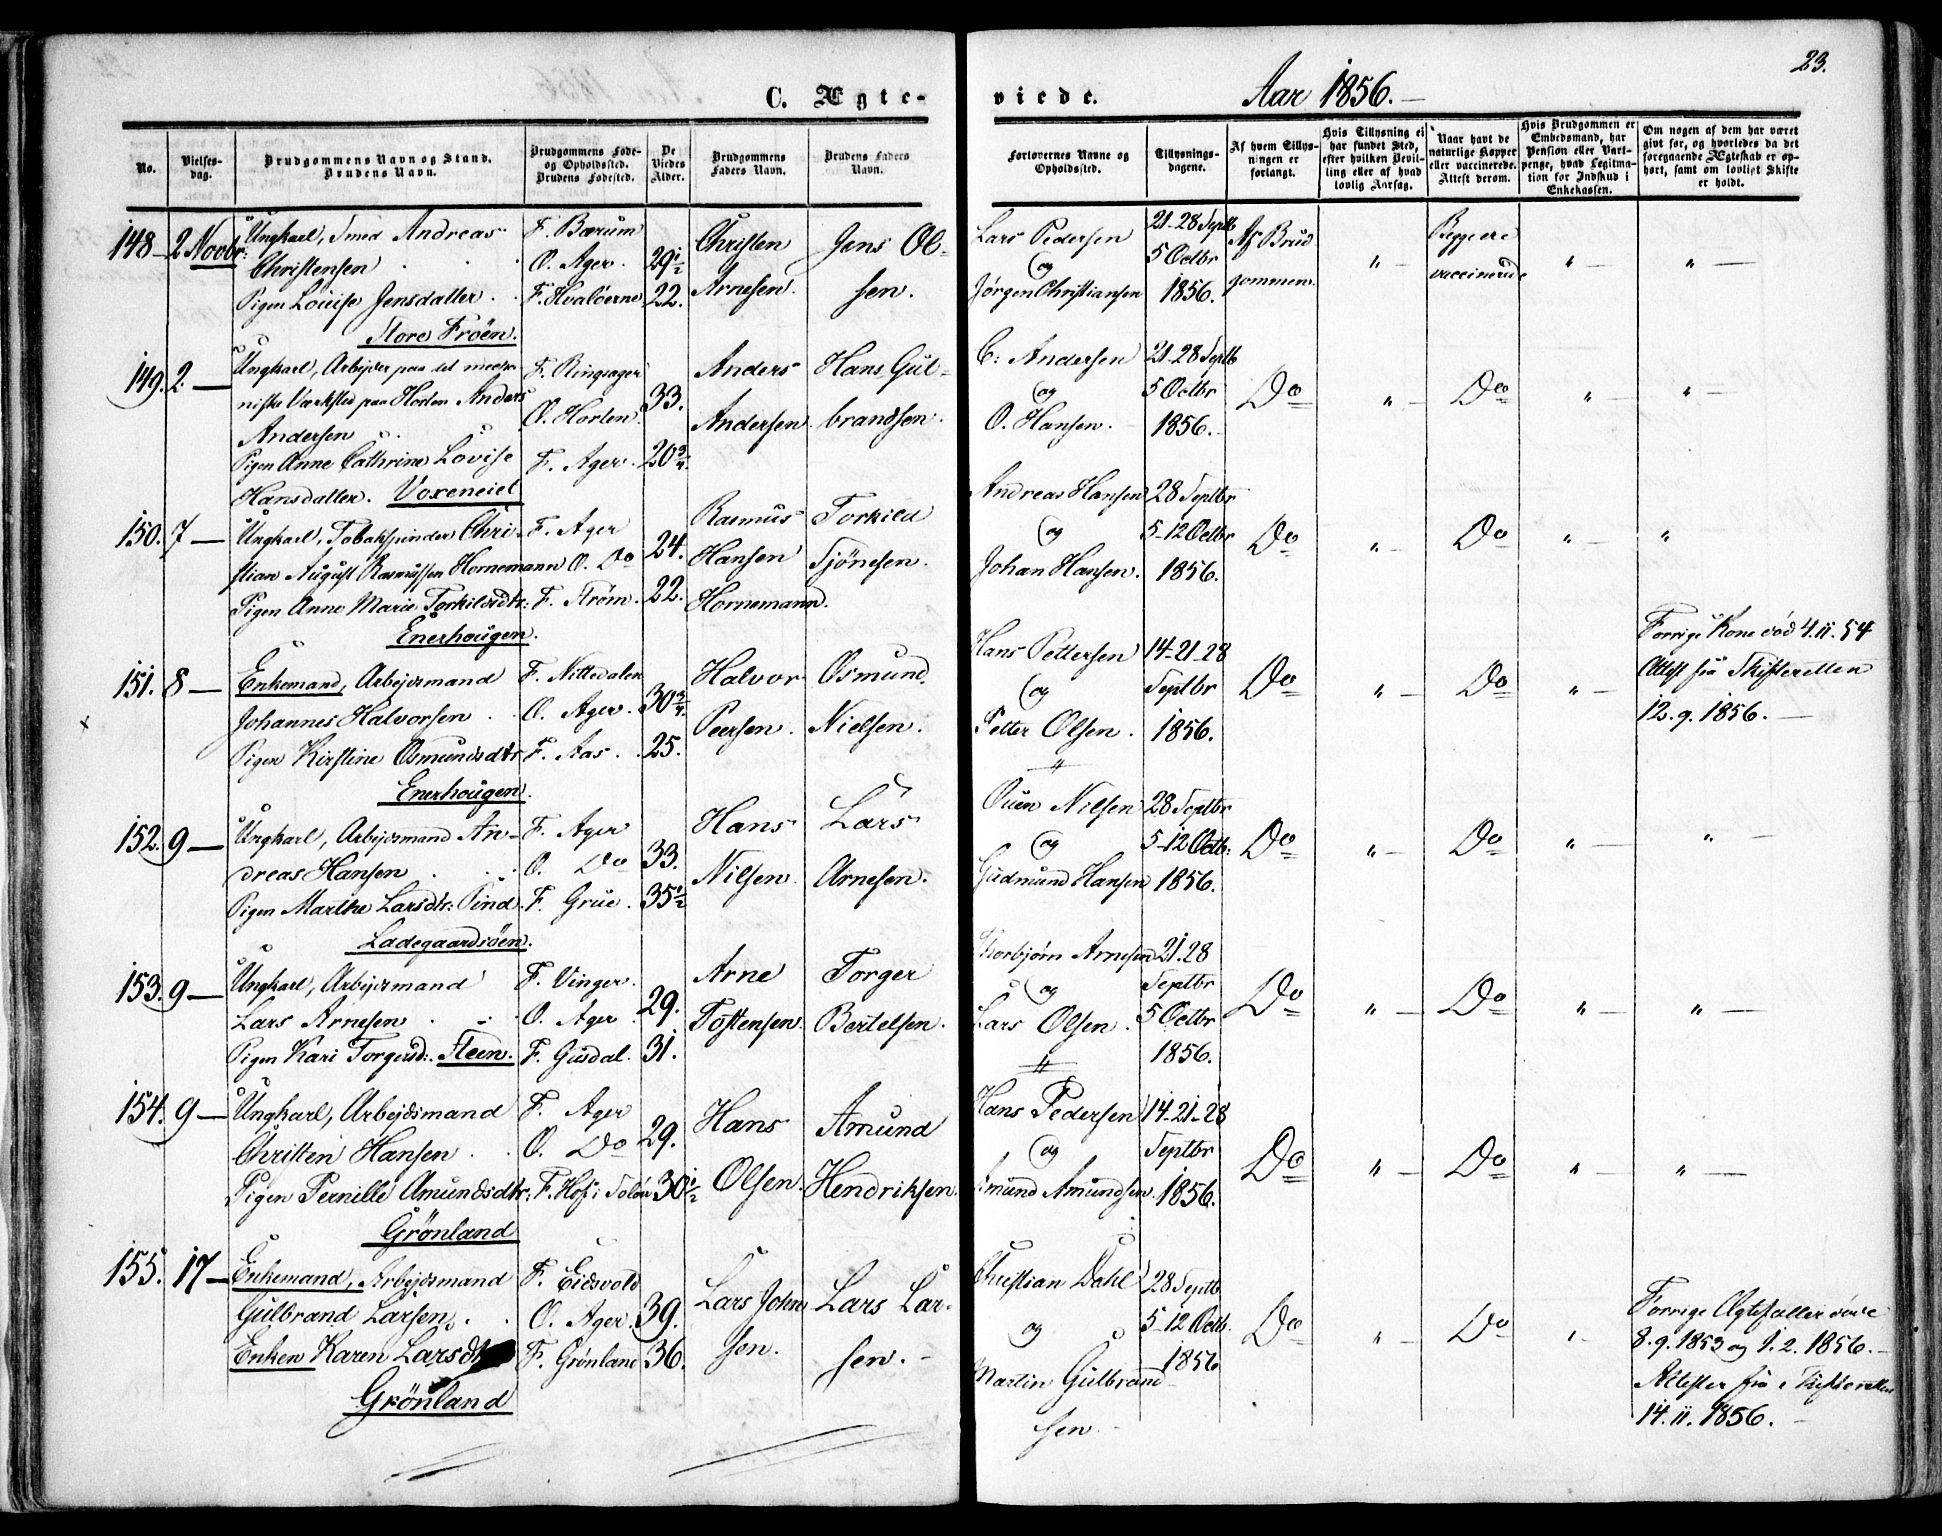 23.
C. Ægte-
viede.
Aar 1856.
No.
Vielses-
dag.
Brudgommens Navn og Stand.
Brudens Navn.
Brudgommens Føde-
og Opholdssted.
Brudens Fødested.
De
Viedes
Alder.
Brudgommens
Faders Navn.
Brudens Faders
Navn.
Forlovernes Navne og
Opholdssted.
Tillysnings-
dagene.
Af hvem Tillys-
ningen er
forlangt.
Hvis Tillysning ei
har fundet Sted,
efter hvilken Bevil-
ling eller af hvad
lovlig Aarsag.
Naar havt de
naturlige Kopper
eller vaccinerede.
Attest derom.
Hvis Brudgommen er
Embedsmand, har
Pension eller Vart-
penge, hvad Legitima-
tion for Indskud i
Enkekassen.
Om nogen af dem har været
givt før, og hvorledes da det
foregaaende Ægteskab er op-
hørt, samt om lovligt Skifte
er holdt.
148 - 2 Novbr:
Ungkarl, Smed Andreas
Christensen
Pigen Louise Jensdatter.
Store Fröen.
F. Bærum
O. Ager.
F. Hvalöerne
29 1/2
22.
Christen
Arnesen.
Jens Ol-
sen.
Lars Pedersen
og
Jörgen Christiansen
21-28 Septb
5 Octbr
1856.
Af Brud
gommen.
" -
Begge ere
vaccinerede
" -
" -
149. 2. -
Ungkarl, Arbejder paa det mecha-
niske Værksted paa Horten Anders
Andersen
Pigen Anne Cathrine Lovise
Hansdatter. Voxeneiet
F. Ringsager
O. Horten
F. Ager.
33.
20 3/4.
Anders
Andersen
Hans Gul-
brandsen.
C: Andersen
og
O. Hansen.
21-28 Septb
5 Octbr
1856.
Do
" -
Do
" -
" -
150. 7 -
Ungkarl, Tobakspinder Chri-
stian August Rasmussen Hornemann
Pigen Anne Marie Torkildsdtr:
Enerhougen.
F. Ager
O. Do
F. Ström.
24.
22.
Rasmus
Hansen
Hornemann.
Torkild
Tjönesen.
Andreas Hansen
og
Johan Hansen.
28 Septbr
5-12 Octbr
1856.
Do
" -
Do
" -
"
151. 8 -
Enkemand, Arbejdsmand
Johannes Halvorsen
Pigen Kirstine Osmundsdtr
Enerhougen.
F. Nittedalen
O. Ager.
F. Aas.
30 3/4.
25.
Halvor
Peersen.
Osmund
Nielsen.
Hans Pettersen
og
Petter Olsen.
14-21-28
Septbr
1856.
Do
" -
Do
" -
Forrige Kone död 4.11.54
Attest fra Skifteretten
12.9.1856. -
152. 9 -
Ungkarl, Arbejdsmand An-
dreas Hansen
Pigen Marthe Larsdtr: Pind.
Ladegaardsöen.
F. Ager
O. Do
F. Grue.
33.
35 1/2
Hans
Nilsen.
Lars
Arnesen.
Ouen Nilsen
og
Gudmund Hansen
28 Septbr
5-12 Octb:
1856.
Do
" -
Do
" -
" -
153. 9 -
Ungkarl, Arbejdsmand
Lars Arnesen
Pigen Kari Torgersd:. Steen.
F. Vinger.
O. Ager.
F. Gusdal.
29.
31.
Arne
Tostensen.
Torger
Bertelsen.
Thorbjörn Arnesen
og
Lars Olsen.
21.28
Septbr
5 Octbr
1856.
Do
" -
Do
" -
" -
154. 9 -
Ungkarl, Arbejdsmand
Christen Hansen
Pigen Pernille Amundsdtr:
Grönland
F. Ager
O. Do
F. Hof i Solör
29.
30 1/2
Hans
Olsen.
Amund
Hendriksen.
Hans Pedersen
og
Amund Amundsen.
14-21-28
Septbr
1856.
Do
" -
Do
" -
" -
155. 17 -
Enkemand, Arbejdsmand
Gulbrand Larsen.
Enken Karen Larsdtr
Grönland
F. Eidsvold
O. Ager.
F. Grönland
39.
36.
Lars Johne
sen.
Lars Lar-
sen. -
Christian Dahl
og
Martin Gulbrand-
sen.
28 Septb
5-12 Octb.
1856
Do
" -
Do
"
Forrige Ægtefæller döde
8.9.1853 og 1.2.1856. -
Attester fra Skifteretten
14.11.1856. -